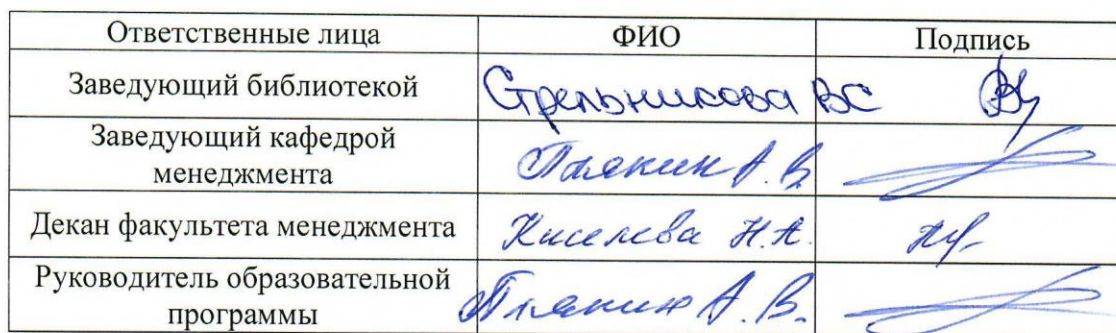 Ответственные лица ФИО Подпись
Заведующий библиотекой Стрельникова ВС
Заведующий кафедрой
менеджмента Плякин А. В.
Декан факультета менеджмента Киселева Н.А.
Руководитель образовательной
программы Плякин А. В.